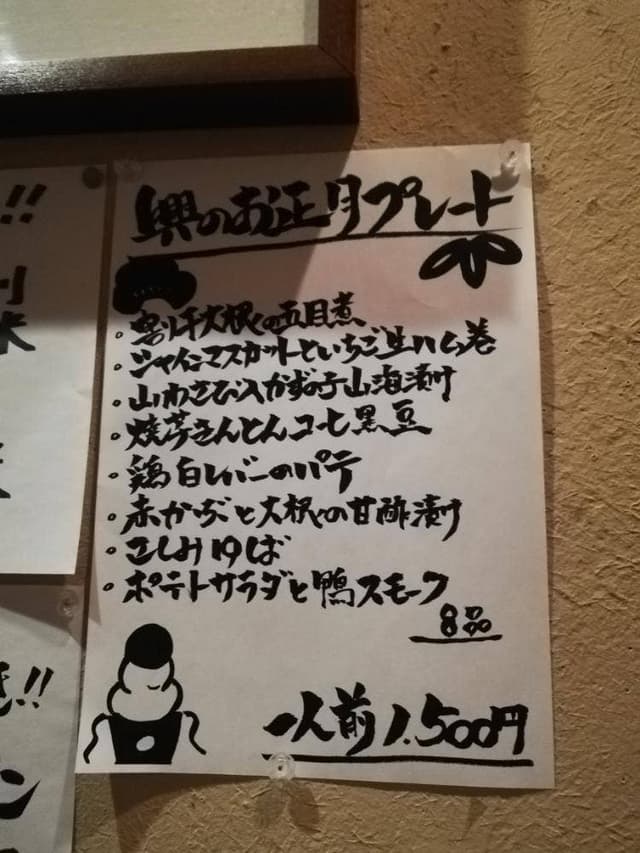 興のお正月プレート
・割り干大根の五目煮
・シャインマスカットといちご生ハム巻
・山わさび入かずの子山海漬け
・焼芋きんとんコーヒ黒豆
・鶏白レバーのパテ
・赤かぶと大根の甘酢漬け
・さしみゆば
・ポテトサラダと鴨スモーク
8品
一人前1.500円
!!
!!
ン